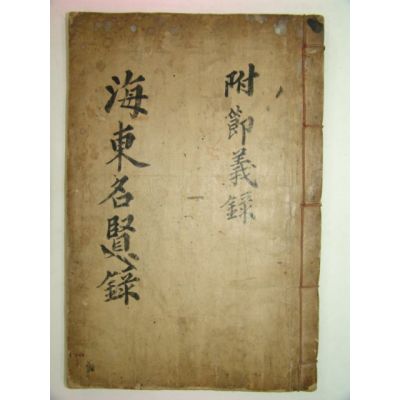 海東名賢錄
附節義錄